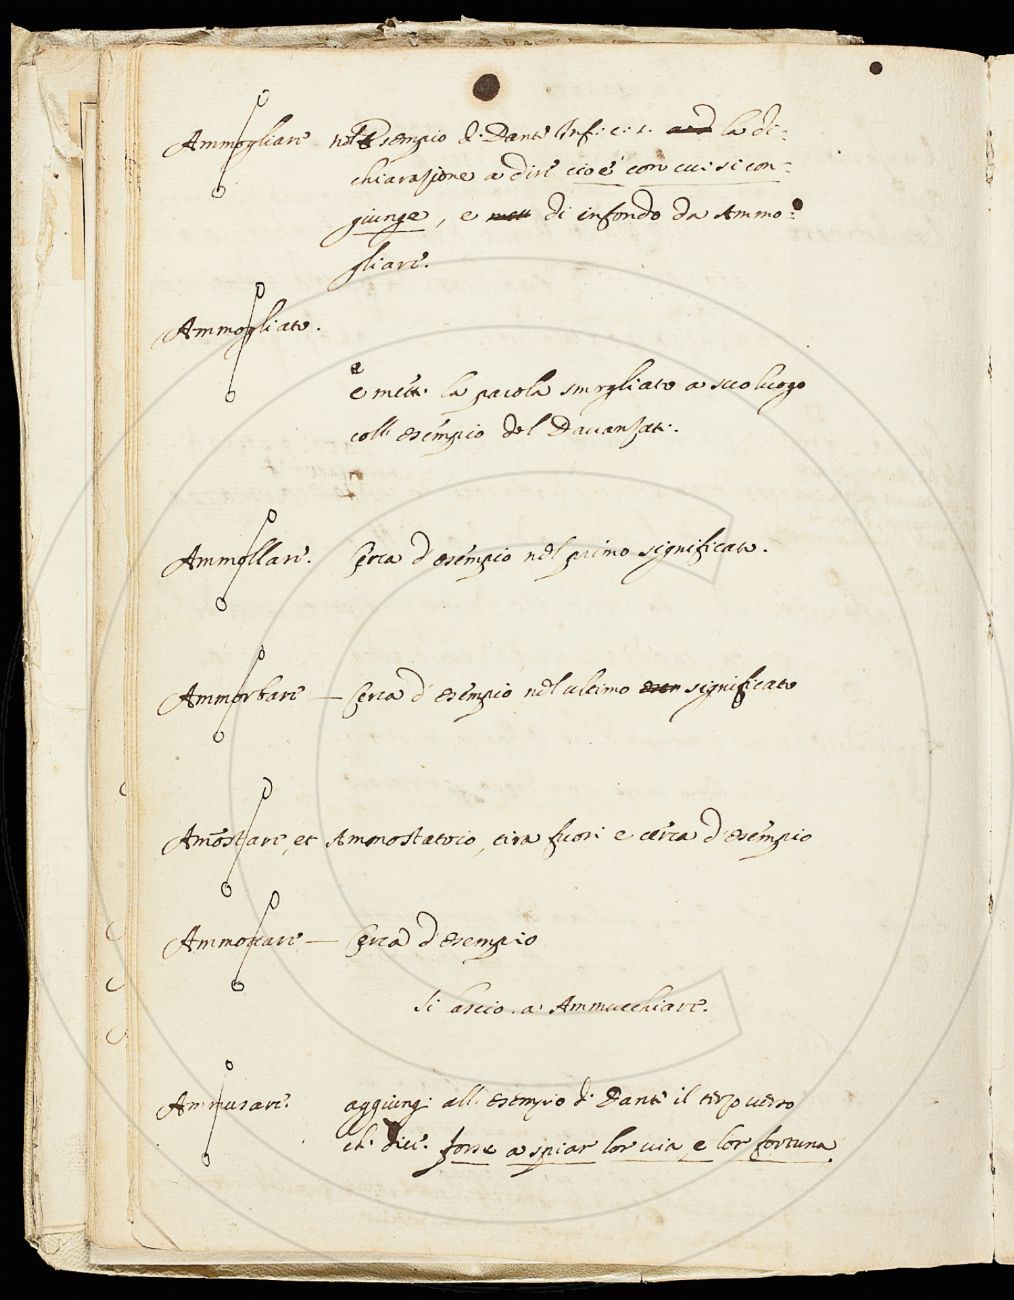 Ammogliare nell'Esempio di Dante Inf: c: 1. add la di-
chiarazione a dire cioè con cui si con-
giunge, e mett di infondo da Ammo-
gliare.
Ammogliato.
e mett: la parola smogliato a suo luogo
coll esempio del Davanzati.
Ammollare. Cerca d'esempio nel primo significato.
Ammorbare — Cerca d'esempio nel ultimo esem significato
Amostare, et Ammostatoio, tira fuori e cerca d'esempio
Ammottare — Cerca d'esempio
si lascio. a Ammucchiare.
Ammusare. aggiungi all esempio di Dante il terzo verso
che dice. forse a spiar lor via, e lor fortuna.